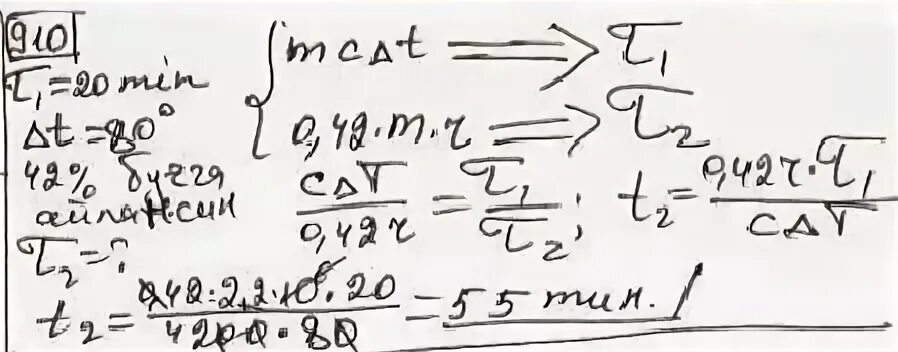 910
τ₁ = 20 min
Δt = 80°
42% буғга
айлансин
τ₂ = ?
{ mcΔt ⟹ τ₁
0,42·m·r ⟹ τ₂
cΔT / 0,42r = τ₁ / τ₂ ; t₂ = 0,42r·τ₁ / cΔT
t₂ = 0,42·2,2·10⁶·20 / 4200·80 = 55 мин.